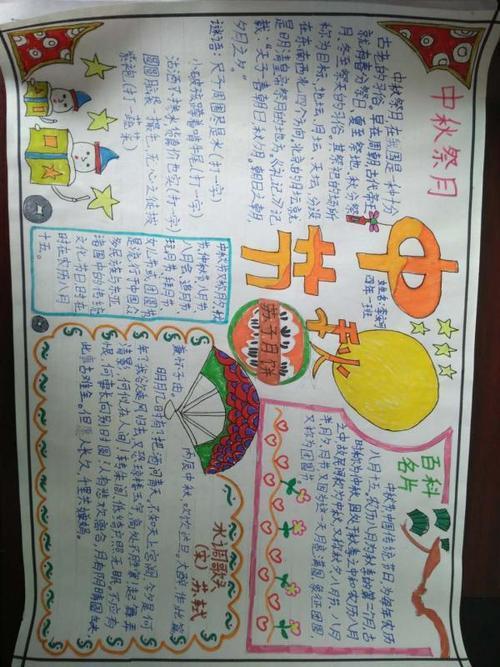 中秋祭月
中秋祭月,在我国是一种十分
古老的习俗。早在周朝,古代帝王
就有春分祭日、夏至祭地、秋分祭
月、冬至祭天的习俗。其祭祀的场所
称为日坛、地坛、月坛、天坛。分设
在东南西北四个方向。北京的月坛就
是明清皇帝祭月的地方。《礼记》记
载:"天子春朝日,秋夕月。朝日之朝,
夕月之夕。"
谜语:尺子周围尽是米(打一字)
(打一字)
(打一字)
圆圆脸
紫袍(打一蔬菜)
中秋节
四年一班
苏子月饼
节,仲秋节,八月节
八月会,追月节
玩月节,拜月节
女儿节或团圆节
是流行于中国众
多民族与东亚
诸国中的传统
文化节日,时在
农历八月
十五。
百科名片
中秋节中国传统节日,为每年农历
八月十五,农历八月为秋季的第二个月,古
时称为中秋,因处于秋季之中和农历八月
之中故民间称为中秋,又称秋夕、八月节、八月
半、月夕、月节,又因为这一天月亮满圆,象征团圆
又称为团圆节
水调歌头
(宋)苏轼
丙辰中秋,欢饮达旦,大醉,作此篇
兼怀子由。
明月几时有?把酒问青天。不知天上宫阙,今夕是何
年?我欲乘风归去,又恐琼楼玉宇,高处不胜寒,起舞弄
清影,何似在人间!转朱阁,低绮户,照无眠。不应有
恨,何事长向别时圆?人有悲欢离合,月有阴晴圆缺,
此事古难全。但愿人长久,千里共婵娟。